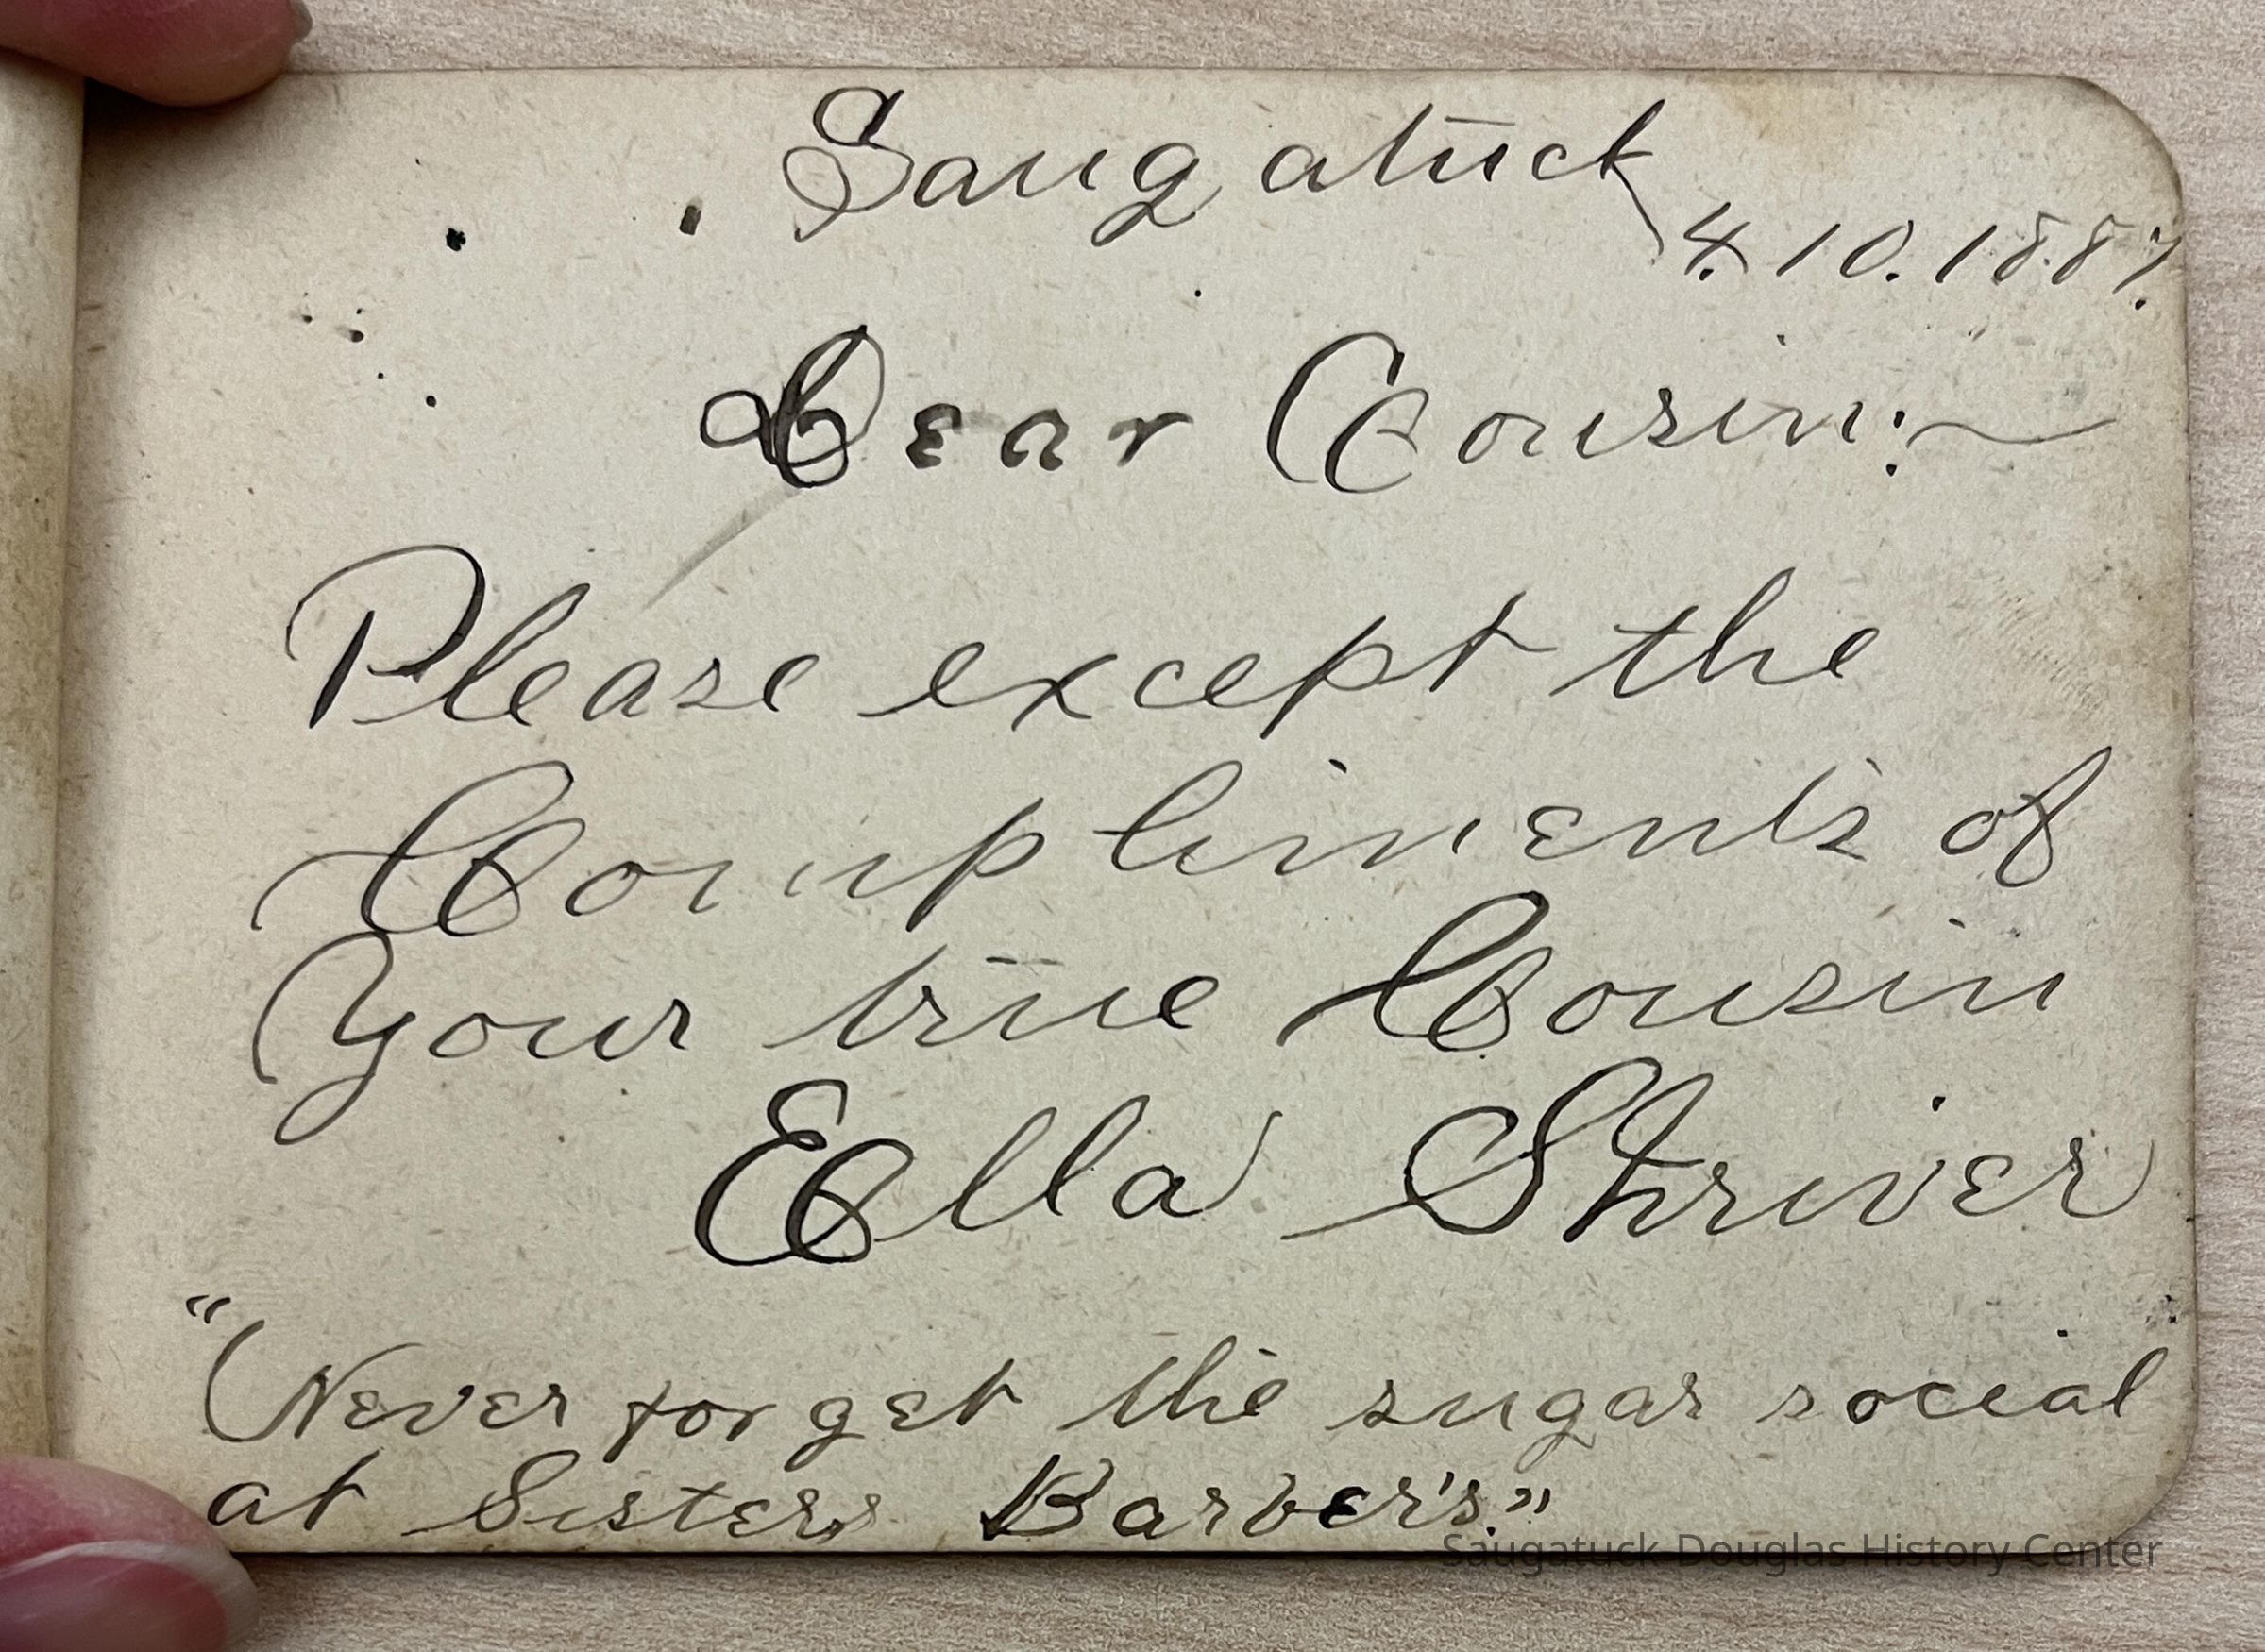 Saugatuck
4.10.1887.
Dear Cousin:
Please except the
Compliments of
Your true Cousin
Ella Shriver
"Never forget the sugar social
at Sisters Barber's."
Saugatuck Douglas History Center